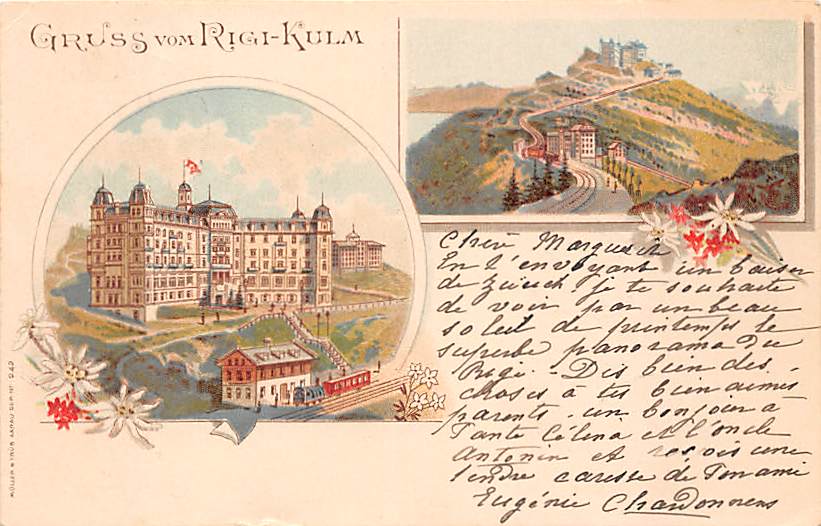 GRUSS VOM RIGI-KULM
Chère Marguerite
En t'envoyant un baiser
de Zürich je te souhaite
de voir par un beau
soleil de printemps le
superbe panorama du
Rigi. Dis bien des
choses à tes bien aimés
parents, un bonjour à
Tante Célina et l'oncle
Antonin et reçois une
tendre caresse de ton amie
Eugénie Chardonnens
MÜLLER & TRÜB AARAU DEP. Nº 242